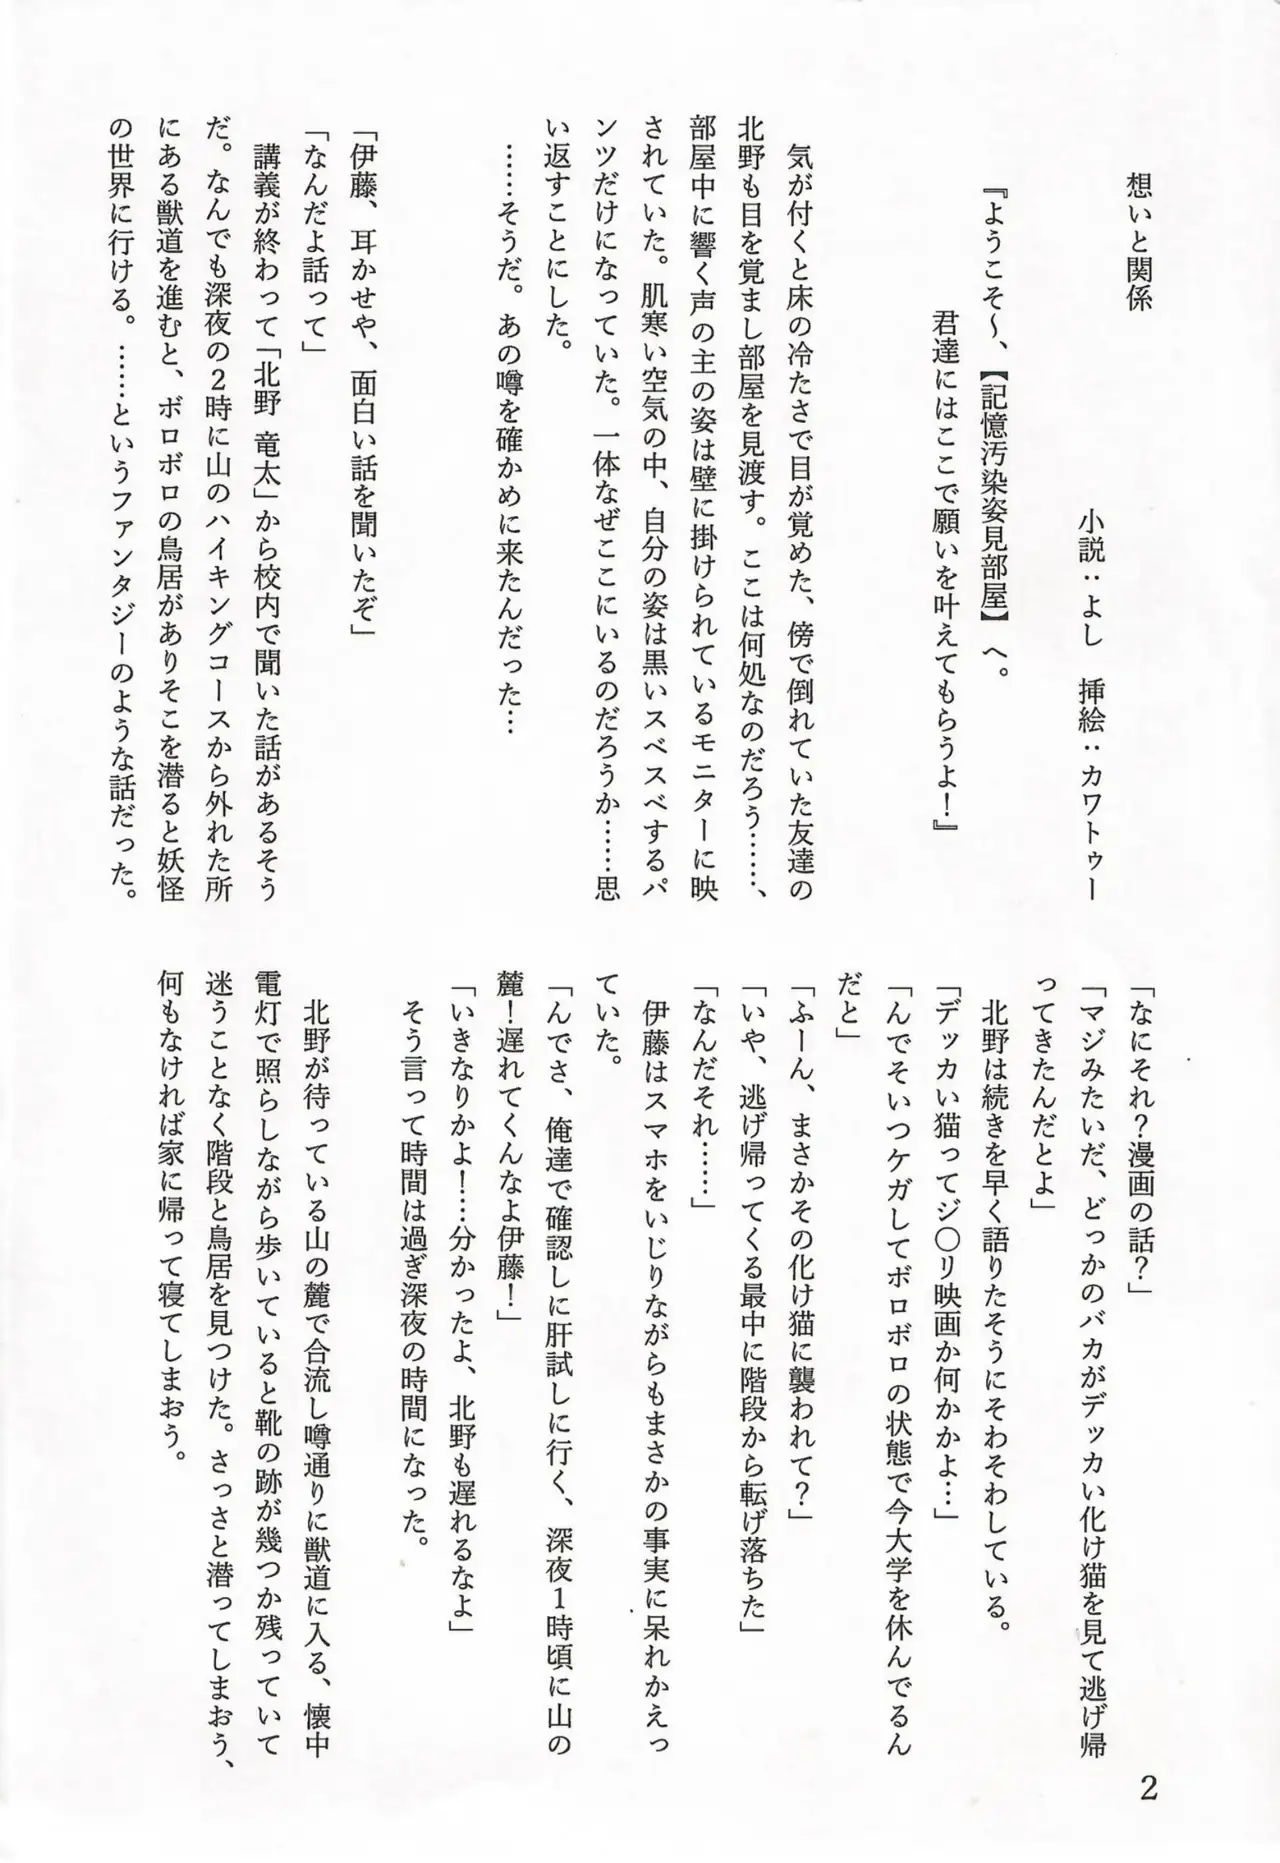 想いと関係
小説：よし　挿絵：カワトゥー
『ようこそ～、【記憶汚染姿見部屋】へ。
君達にはここで願いを叶えてもらうよ！』
気が付くと床の冷たさで目が覚めた、傍で倒れていた友達の
北野も目を覚まし部屋を見渡す。ここは何処なのだろう……、
部屋中に響く声の主の姿は壁に掛けられているモニターに映
されていた。肌寒い空気の中、自分の姿は黒いスベスベするパ
ンツだけになっていた。一体なぜここにいるのだろうか……思
い返すことにした。
……そうだ。あの噂を確かめに来たんだった…
「伊藤、耳かせや、面白い話を聞いたぞ」
「なんだよ話って」
講義が終わって「北野 竜太」から校内で聞いた話があるそう
だ。なんでも深夜の２時に山のハイキングコースから外れた所
にある獣道を進むと、ボロボロの鳥居がありそこを潜ると妖怪
の世界に行ける。……というファンタジーのような話だった。
「なにそれ？漫画の話？」
「マジみたいだ、どっかのバカがデッカい化け猫を見て逃げ帰
ってきたんだとよ」
北野は続きを早く語りたそうにそわそわしている。
「デッカい猫ってジ〇リ映画か何かかよ…」
「んでそいつケガしてボロボロの状態で今大学を休んでるん
だと」
「ふーん、まさかその化け猫に襲われて？」
「いや、逃げ帰ってくる最中に階段から転げ落ちた」
「なんだそれ……」
伊藤はスマホをいじりながらもまさかの事実に呆れかえっ
ていた。
「んでさ、俺達で確認しに肝試しに行く、深夜１時頃に山の
麓！遅れてくんなよ伊藤！」
「いきなりかよ！…分かったよ、北野も遅れるなよ」
そう言って時間は過ぎ深夜の時間になった。
北野が待っている山の麓で合流し噂通りに獣道に入る、懐中
電灯で照らしながら歩いていると靴の跡が幾つか残っていて
迷うことなく階段と鳥居を見つけた。さっさと潜ってしまおう、
何もなければ家に帰って寝てしまおう。
2